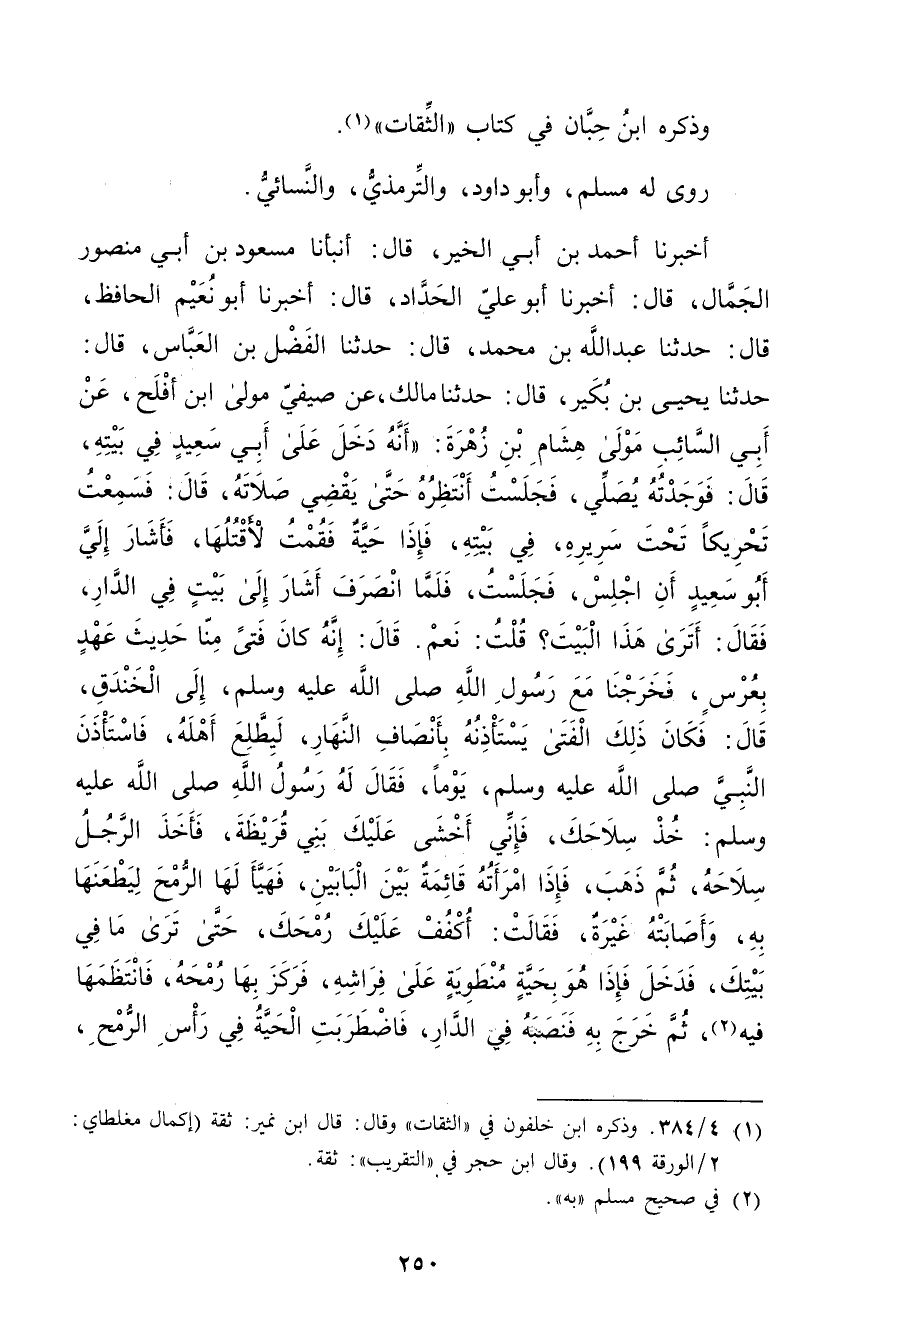 وذكره ابنُ حِبَّان في كتاب «الثِّقات»(١).
روى له مسلم، وأبو داود، والتِّرمذيُّ، والنَّسائيُّ.
أخبرنا أحمد بن أبي الخير، قال: أنبأنا مسعود بن أبي منصور
الجَمَّال، قال: أخبرنا أبو عليّ الحَدَّاد، قال: أخبرنا أبو نُعَيْم الحافظ،
قال: حدثنا عبدالله بن محمد، قال: حدثنا الفَضْل بن العَبَّاس، قال:
حدثنا يحيى بن بُكَير، قال: حدثنا مالك، عن صيفيّ مولىٰ ابن أفْلَح، عَنْ
أَبِي السَّائِبِ مَوْلَىٰ هِشَامِ بْنِ زُهْرَةَ: «أَنَّهُ دَخَلَ عَلَىٰ أَبِي سَعِيدٍ فِي بَيْتِهِ،
قَالَ: فَوَجَدْتُهُ يُصَلِّي، فَجَلَسْتُ أَنْتَظِرُهُ حَتَّىٰ يَقْضِي صَلَاتَهُ، قَالَ: فَسَمِعْتُ
تَحْرِيكاً تَحْتَ سَرِيرِهِ، فِي بَيْتِهِ، فَإِذَا حَيَّةٌ فَقُمْتُ لْأَقْتُلُهَا، فَأَشَارَ إِلَيَّ
أَبُو سَعِيدٍ أَنِ اجْلِسْ، فَجَلَسْتُ، فَلَمَّا انْصَرَفَ أَشَارَ إِلَىٰ بَيْتٍ فِي الدَّارِ،
فَقَالَ: أَتَرَىٰ هَذَا الْبَيْتَ؟ قُلْتُ: نَعمْ. قَالَ: إِنَّهُ كانَ فَتىً مِنّا حَدِيثَ عَهْدٍ
بِعُرْسٍ، فَخَرَجْنَا مَعَ رَسُولِ اللَّهِ صلى الله عليه وسلم، إِلَى الْخَنْدَقِ،
قَالَ: فَكَانَ ذَلِكَ الْفَتَىٰ يَسْتَأْذِنُهُ بِأَنْصَافِ النَّهَارِ، لَيَطَّلِعَ أَهْلَهُ، فَاسْتَأْذَنَ
النَّبِيَّ صلى الله عليه وسلم، يَوْماً، فَقَالَ لَهُ رَسُولُ اللَّهِ صلى الله عليه
وسلم: خُذْ سِلَاحَكَ، فَإِنِّي أَخْشَى عَلَيْكَ بَنِي قُرَيْظَةَ، فَأَخَذَ الرَّجُلُ
سِلاَحَهُ، ثُمَّ ذَهَبَ، فَإِذَا امْرَأَتُهُ قَائِمَةٌ بَيْنَ الْبَابَيْنِ، فَهَيَّأَ لَهَا الرُّمْحَ لِيَطْعَنَهَا
بِهِ، وَأَصَابَتْهُ غَيْرَةٌ، فَقَالَتْ: أُكْفُفْ عَلَيْكَ رُمْحَكَ، حَتَّىٰ تَرَىٰ مَا فِي
بَيْتِكَ، فَدَخَلَ فَإِذَا هُوَ بِحَيَّةٍ مُنْطَوِيَةٍ عَلَىٰ فِرَاشِهِ، فَرَكَزَ بِهَا رُمْحَهُ، فَانْتَظَمَهَا
فيه(٢)، ثُمَّ خَرَجَ بِهِ فَنَصَبَهُ فِي الدَّارِ، فَاضْطَرَبَتِ الْحَيَّةُ فِي رَأْسِ الرُّمْحِ،
(١) ٣٨٤/٤. وذكره ابن خلفون في «الثقات» وقال: قال ابن نمير: ثقة (إكمال مغلطاي:
٢/الورقة ١٩٩). وقال ابن حجر في «التقريب»: ثقة.
(٢) في صحيح مسلم «به».
٢٥٠